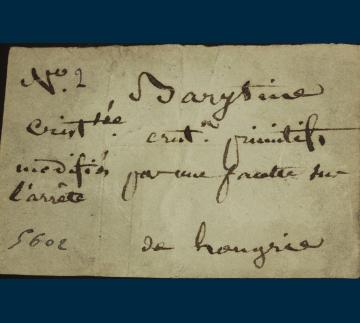 No. 2 Barytine
Cristsée. crist.n primitifs
modifiés par une facette sur
l'arrête
5602 de hongrie